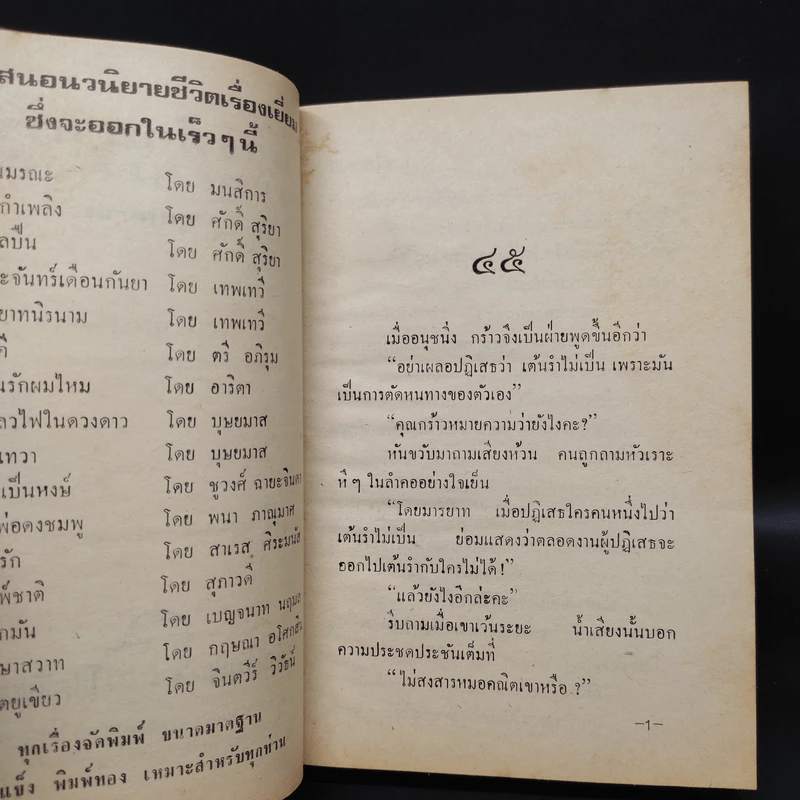 สนอนวนิยายชีวิตเรื่องเยี่ยม
ซึ่งจะออกในเร็วๆนี้
มรณะ โดย มนสิการ
กำเพลิง โดย ศักดิ์ สุริยา
ลปืน โดย ศักดิ์ สุริยา
ะจันทร์เดือนกันยา โดย เทพเทวี
ยาทนิรนาม โดย เทพเทวี
โดย ตรี อภิรุม
นรักผมไหม โดย อาริตา
ลวไฟในดวงดาว โดย บุษยมาส
เทวา โดย บุษยมาส
เป็นหงษ์ โดย ชูวงศ์ ฉายะจินดา
พ่อดงชมพู โดย พนา ภาณุมาศ
รัก โดย สาเรส ศิระมนัส
พ์ชาติ โดย สุภาวดี
กมัน โดย เบญจนาท นฤมล
ษาสวาท โดย กฤษณา อโศกสิน
ตยูเขียว โดย จินตวีร์ วิวัธน์
ทุกเรื่องจัดพิมพ์ ขนาดมาตฐาน
แข็ง พิมพ์ทอง เหมาะสำหรับทุกท่าน
๔๕
เมื่ออนุชนิ่ง กร้าวจึงเป็นฝ่ายพูดขึ้นอีกว่า
“อย่าเผลอปฏิเสธว่า เต้นรำไม่เป็น เพราะมัน
เป็นการตัดหนทางของตัวเอง”
“คุณกร้าวหมายความว่ายังไงคะ?”
หันขวับมาถามเสียงห้วน คนถูกถามหัวเราะ
หึ ๆ ในลำคออย่างใจเย็น
“โดยมารยาท เมื่อปฏิเสธใครคนหนึ่งไปว่า
เต้นรำไม่เป็น ย่อมแสดงว่าตลอดงานผู้ปฏิเสธจะ
ออกไปเต้นรำกับใครไม่ได้ !”
“แล้วยังไงอีกล่ะคะ”
รีบถามเมื่อเขาเว้นระยะ น้ำเสียงนั้นบอก
ความประชดประชันเต็มที่
“ไม่สงสารหมอคณิตเขาหรือ ?”
—1—